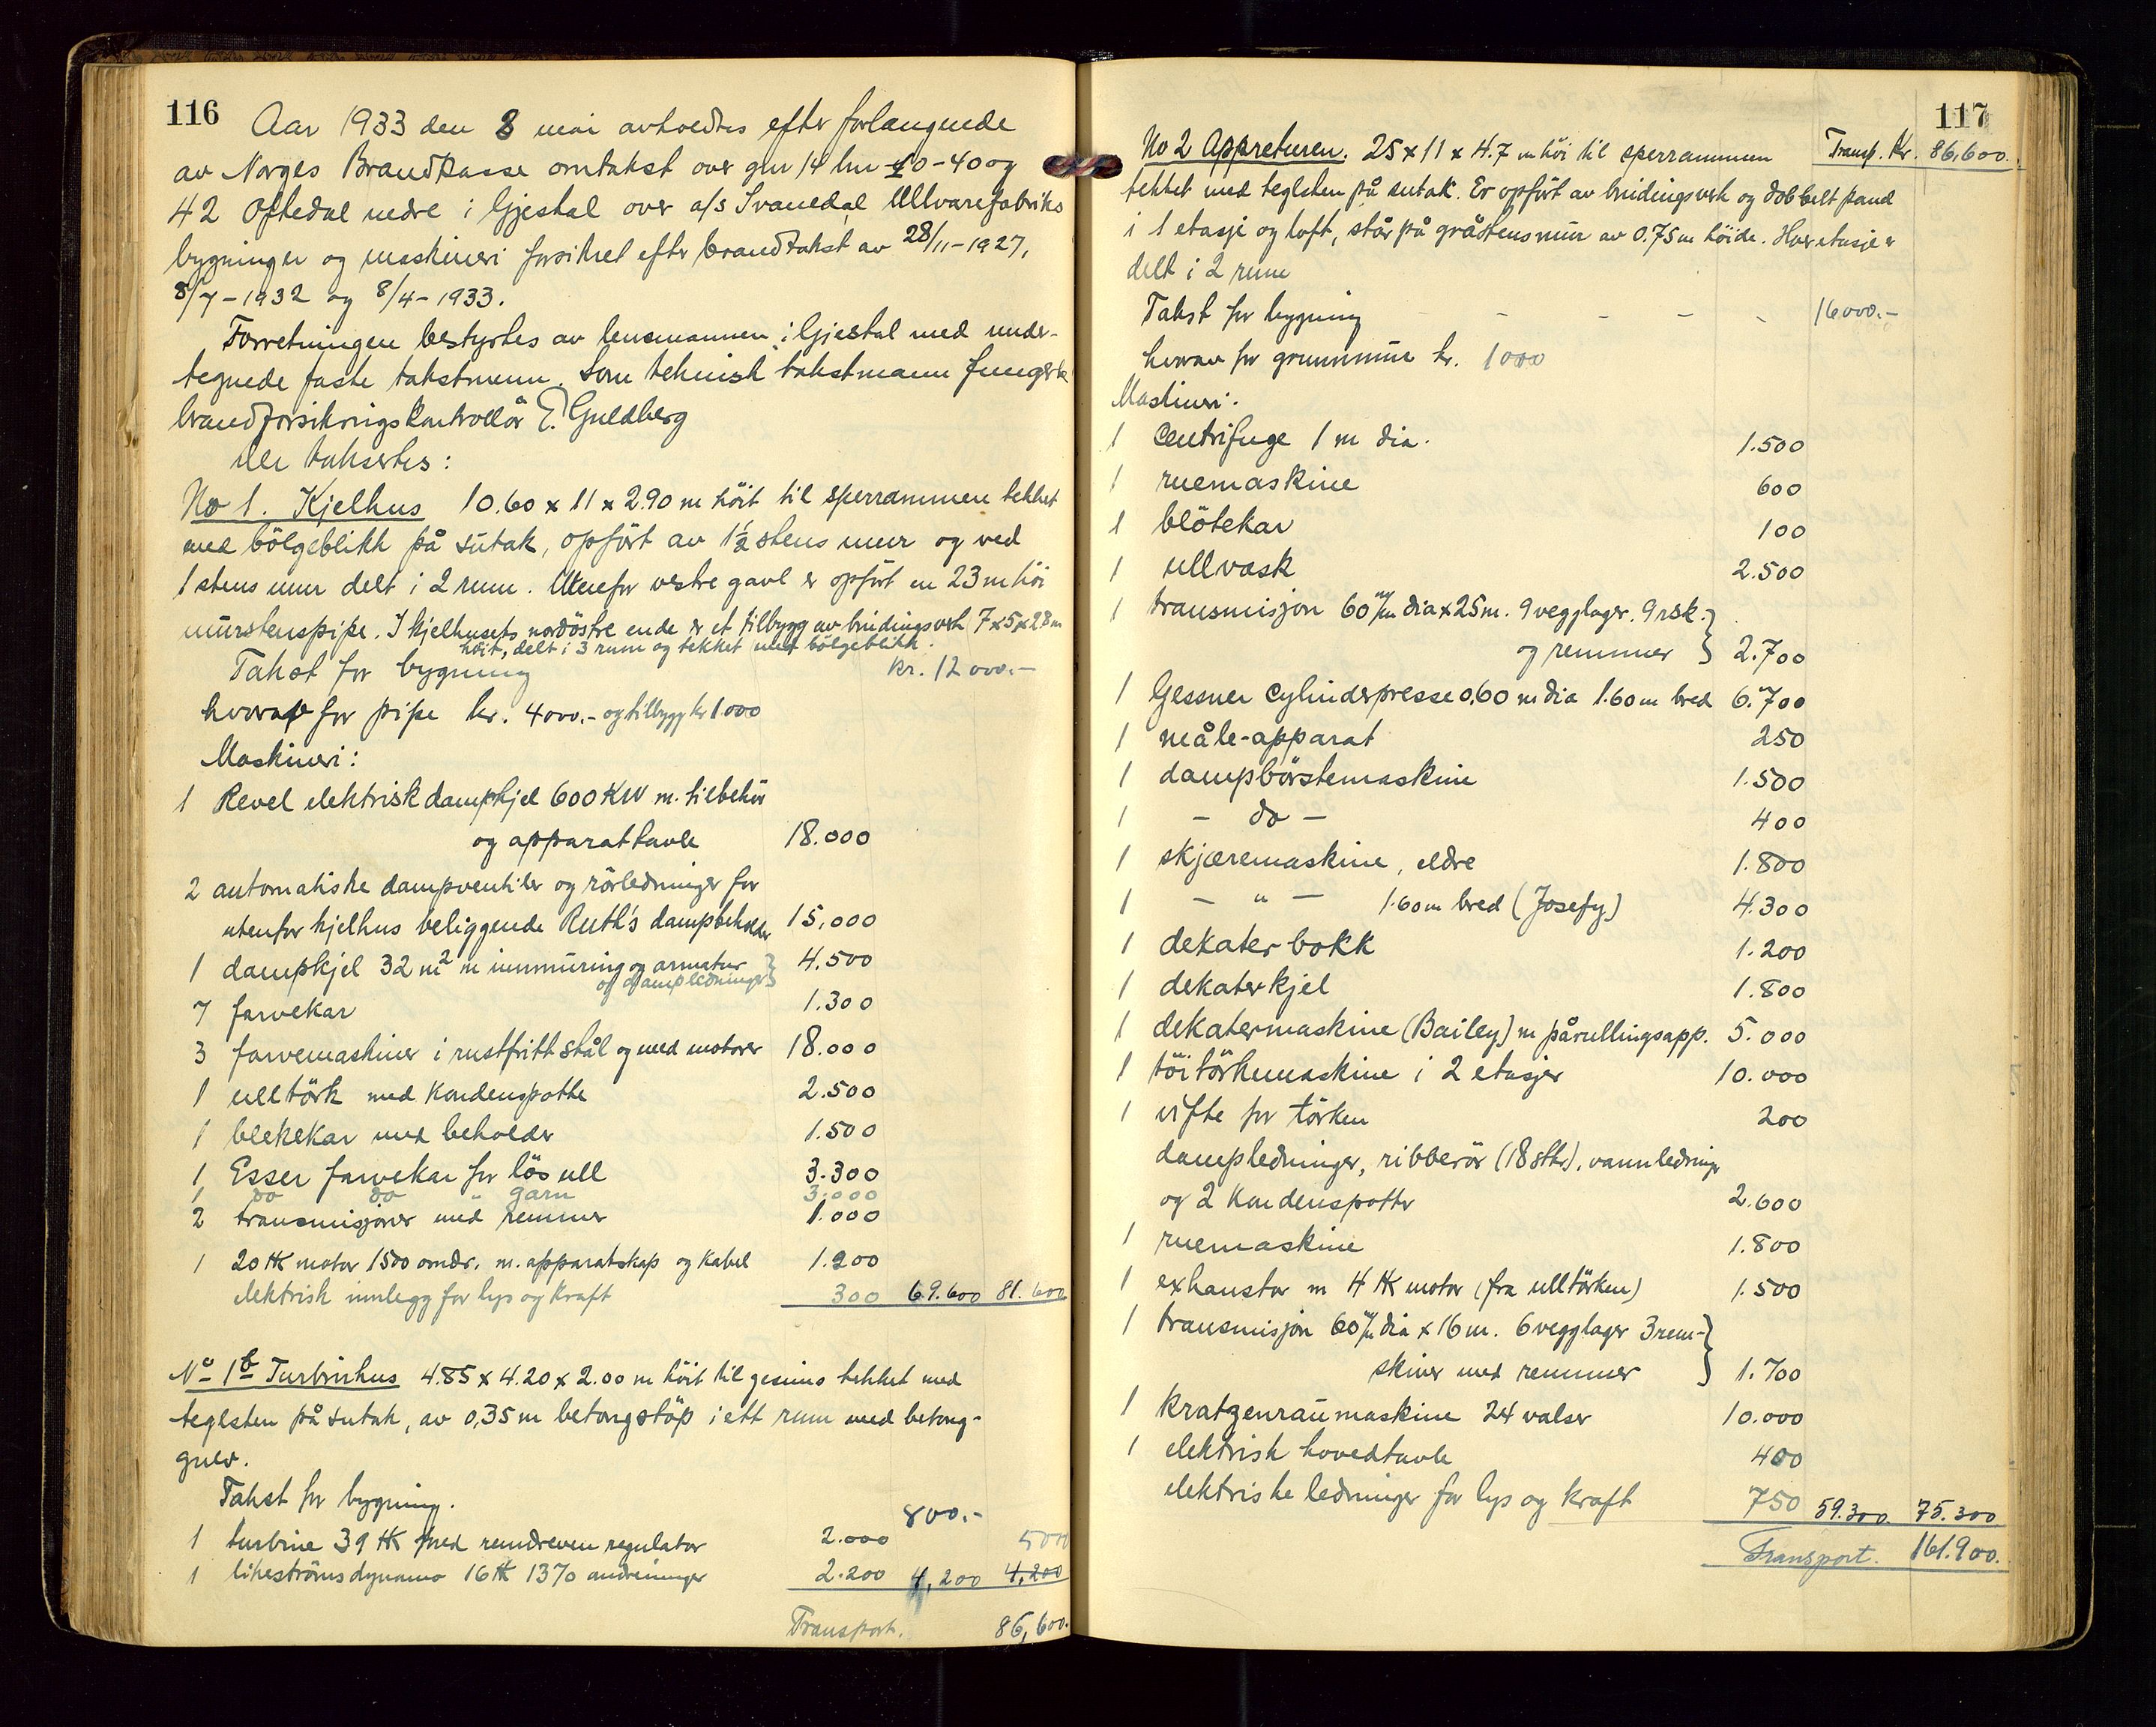 116
Aar 1933 den 8 mai avholdtes efter forlangende
av Norges Brandkasse omtakst over gnr 14 bnr 10-40 og
42 Oftedal nedre i Gjestal over a/s Svanedal Ullvarefabriks
bygninger og maskineri forsikret efter brandtakst av 28/11-1927,
8/7-1932 og 8/4-1933.
Forretningen bestyrtes av lensmannen i Gjestal med under-
tegnede faste takstmenn. Som teknisk takstmann fungerte
brandforsikringskontrollør E. Guldberg
Der taksertes:
No 1. Kjelhus 10.60 x 11 x 2.90 m höit til sperrammen tekket
med bölgeblikk på sutak, opfört av 1½ stens mur og ved
1 stens mur delt i 2 rum. Utenfor vestre gavl er opfört en 23 m höi
murstenspipe. I kjelhusets nordöstre ende er et tilbygg av bindingsverk 7x5x2.8 m
höit, delt i 3 rum og tekket med bölgeblikk.
Takst for bygning kr. 12000.-
hvorav for pipe kr. 4000.- og tilbygg kr 1000
Maskineri:
1 Revel elektrisk dampkjel 600 KW m. tilbehör
og apparattavle 18.000
2 automatiske dampventiler og rörledninger for
utenfor kjelhus beliggende Ruth's dampbeholder 15.000
1 dampkjel 32 m2 m innmuring og armatur } 4.500
og dampledninger
7 farvekar 1.300
3 farvemaskiner i rustfritt stål og med motorer 18.000
1 ulltörk med kondenspotte 2.500
1 blekekar med beholder 1.500
1 Esser farvekar for lös ull 3.300
1 do do " garn 3.000
2 transmisjoner med remmer 1.000
1 20 HK motor 1500 omdr. m. apparatskap og kabel 1.200
elektrisk innlegg for lys og kraft 300 69.600 81.600
No 1b Turbinhus 4.85 x 4.20 x 2.00 m höit til gesims tekket med
teglsten på sutak, av 0,35 m betongstöp i ett rum med betong-
gulv.
Takst for bygning. 800.-
1 turbine 39 HK med remdreven regulator 2.000 5000
1 likeströmsdynamo 16 HK 1370 omdreininger 2.200 4,200 4,200
Transport. 86,600.
117
No 2 Appreturen. 25 x 11 x 4.7 m höi til sperrammen Transp. Kr. 86,600.
tekket med teglsten på sutak. Er opfört av bindingsverk og dobbelt pand
i 1 etasje og loft, står på gråstensmur av 0.75 m höide. Hver etasje er
delt i 2 rum
Takst for bygning - - - - 16000.-
hvorav for grunnmur kr. 1000
Maskineri.
1 Centrifuge 1 m dia. 1.500
1 ruemaskine 600
1 blötekar 100
1 ullvask 2.500
1 transmisjon 60 m/m dia x 25 m. 9 vegglager. 9 rsk. }
og remmer } 2.700
1 Gessner Cylinderpresse 0,60 m dia 1.60 m bred 6.700
1 måle-apparat 250
1 dampbörstemaskine 1.500
1 - do - 400
1 skjæremaskine, eldre 1.800
1 - " - 1.60 m bred (Josefy) 4.300
1 dekaterbokk 1.200
1 dekaterkjel 1.800
1 dekatermaskine (Bailey) m pårullingsapp. 5.000
1 töitörkemaskine i 2 etasjer 10.000
1 vifte for törken 200
dampledninger, ribberör (18 stkr), vannledning
og 2 kondenspotter 2.600
1 ruemaskine 1.800
1 exhaustor m 4 HK motor (fra ulltörken) 1.500
1 transmisjon 60 m/m dia x 16 m. 6 vegglager 3 rem- }
skiver med remmer } 1.700
1 Kratzenraumaskine 24 valser 10.000
1 elektrisk hovedtavle 400
elektriske ledninger for lys og kraft 750 59.300. 75.300
Transport. 161.900.